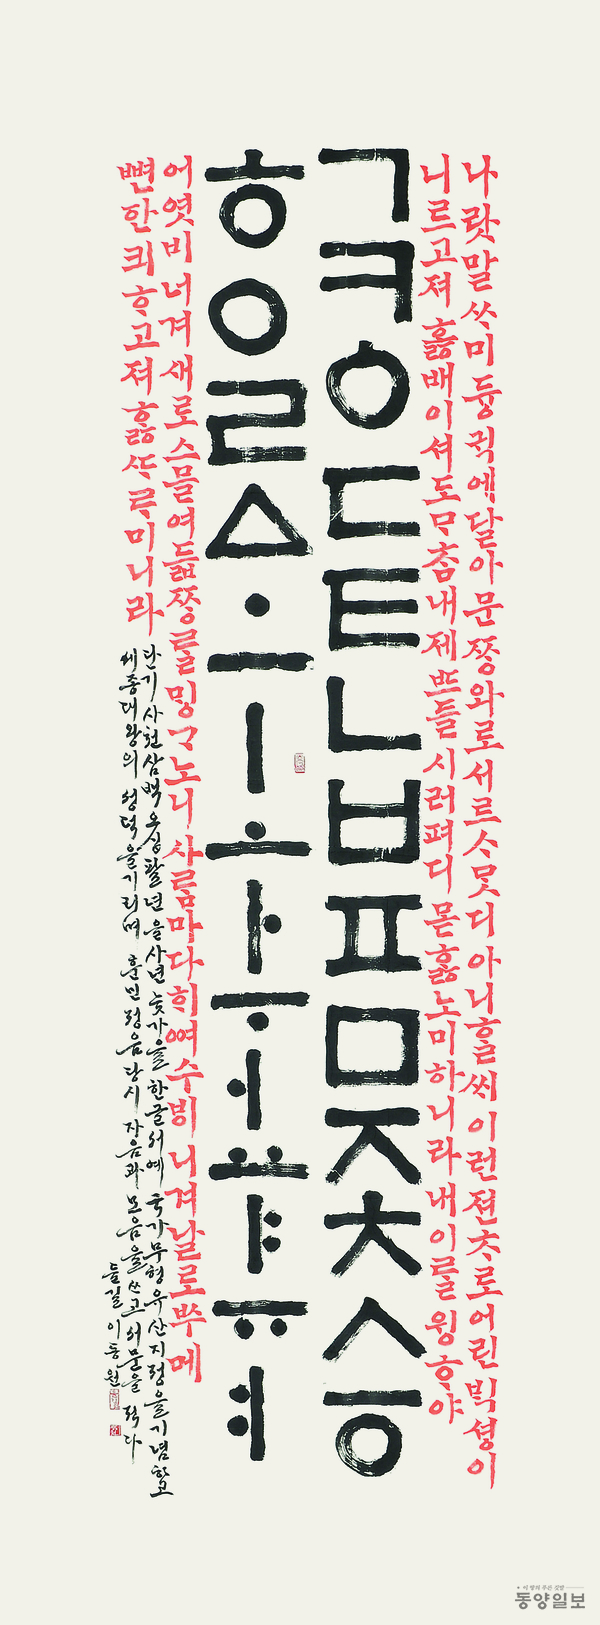 나랏말ᄊᆞ미듕귁에달아문ᄍᆞᆼ와로서르ᄉᆞᄆᆞᆺ디아니ᄒᆞᆯᄊᆡ이런젼ᄎᆞ로어린ᄇᆡᆨ셩이
니르고져호ᇙ배이셔도ᄆᆞᄎᆞᆷ내제ᄠᅳ들시러펴디몯ᄒᆞᇙ노미하니라내이ᄅᆞᆯ윙ᄒᆞ야
ㄱㅋㆁㄷㅌㄴㅂㅍㅁㅈㅊㅅㆆ
ㅎㅇㄹㅿㆍㅡㅣㅗㅏㅜㅓㅛㅑㅠㅕ
어엿비너겨새로스믈여듧ᄍᆞᆼᄅᆞᆯᄆᆡᇰᄀᆞ노니사ᄅᆞᆷ마다ᄒᆡᅇᅧ수ᄫᅵ니겨날로ᄡᅮ메
뼌한킈ᄒᆞ고져ᄒᆞᇙᄯᆞᄅᆞ미니라
단기사천삼백오십팔년을사년늦가을 한글서예 국가무형유산지정을기념하고
세종대왕의 성덕을기리며 훈민정음당시 자음과 모음을쓰고서문을 적다
들길 이동원
이 땅의 푸른 깃발
동양일보